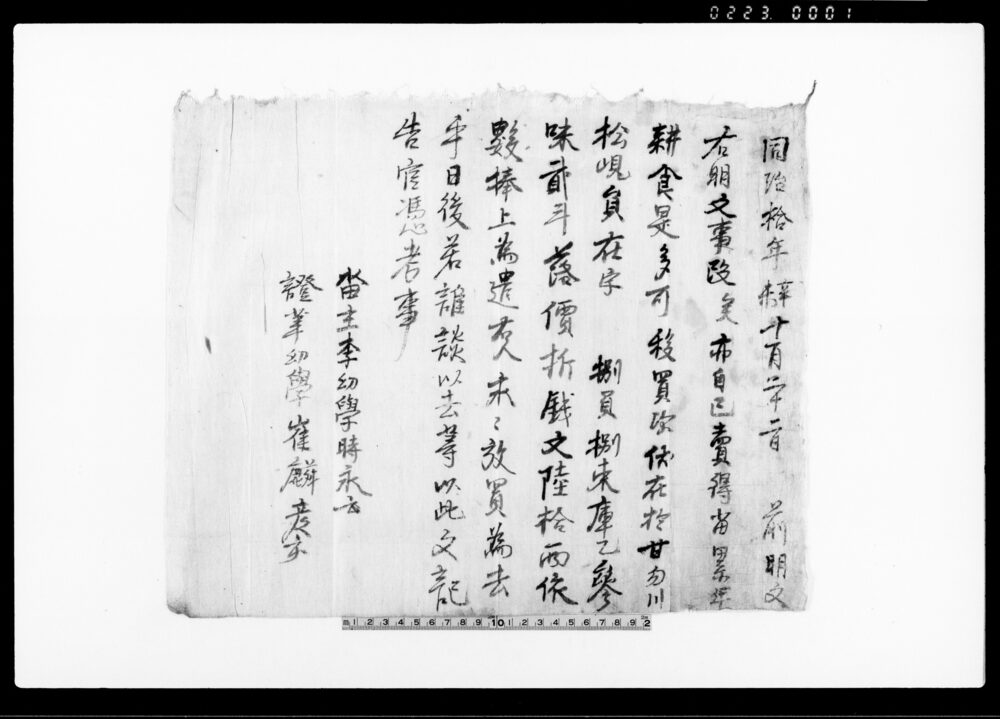 0223. 0001
同治拾年辛未十月二十一日 前明文
右明文事段矣亦自己賣得畓累年
耕食是多可移買次伏在於甘勿川
松峴員在字 捌員捌束庫乙參
味貳斗落價折錢文陸拾兩依
數捧上爲遣右人未〻放買爲去
乎日後若雜談以去等以此文記
告官憑考事
畓主李幼學時永
證筆幼學崔麟
1 2 3 4 5 6 7 8 9 10 1 2 3 4 5 6 7 8 9 2